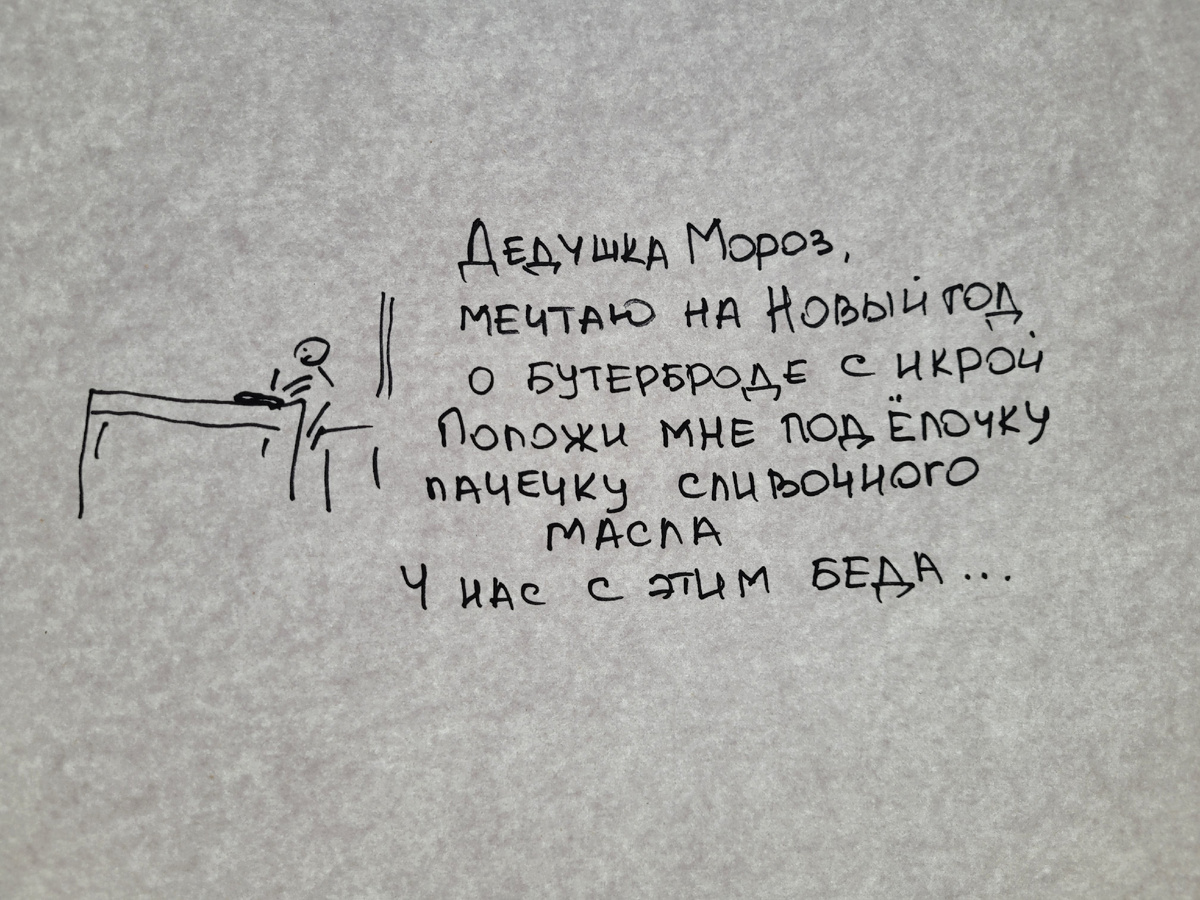 Дедушка Мороз,
мечтаю на Новый год
о бутерброде с икрой
Положи мне под ёлочку
пачечку сливочного
масла
У нас с этим беда...